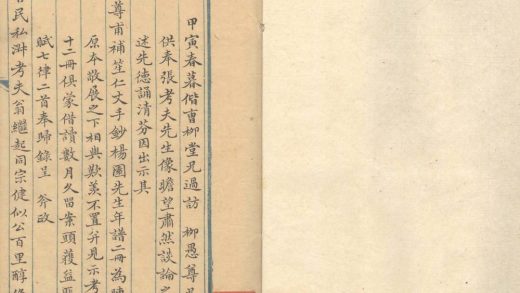 甲寅春暮偕曹柳堂兄過訪 柳愚尊
供奉張考夫先生像瞻望肅然談論之
述先德誦清芬因出示其
尊甫補笙仁丈手鈔楊園先生年譜二冊為
原本敬展之下相與歎羨不置并見示考
十二冊俱蒙借讀數月久留案頭獲益
賦七律二首奉歸錄呈 斧政
民私淑考夫翁繼起同宗健似公百里醇